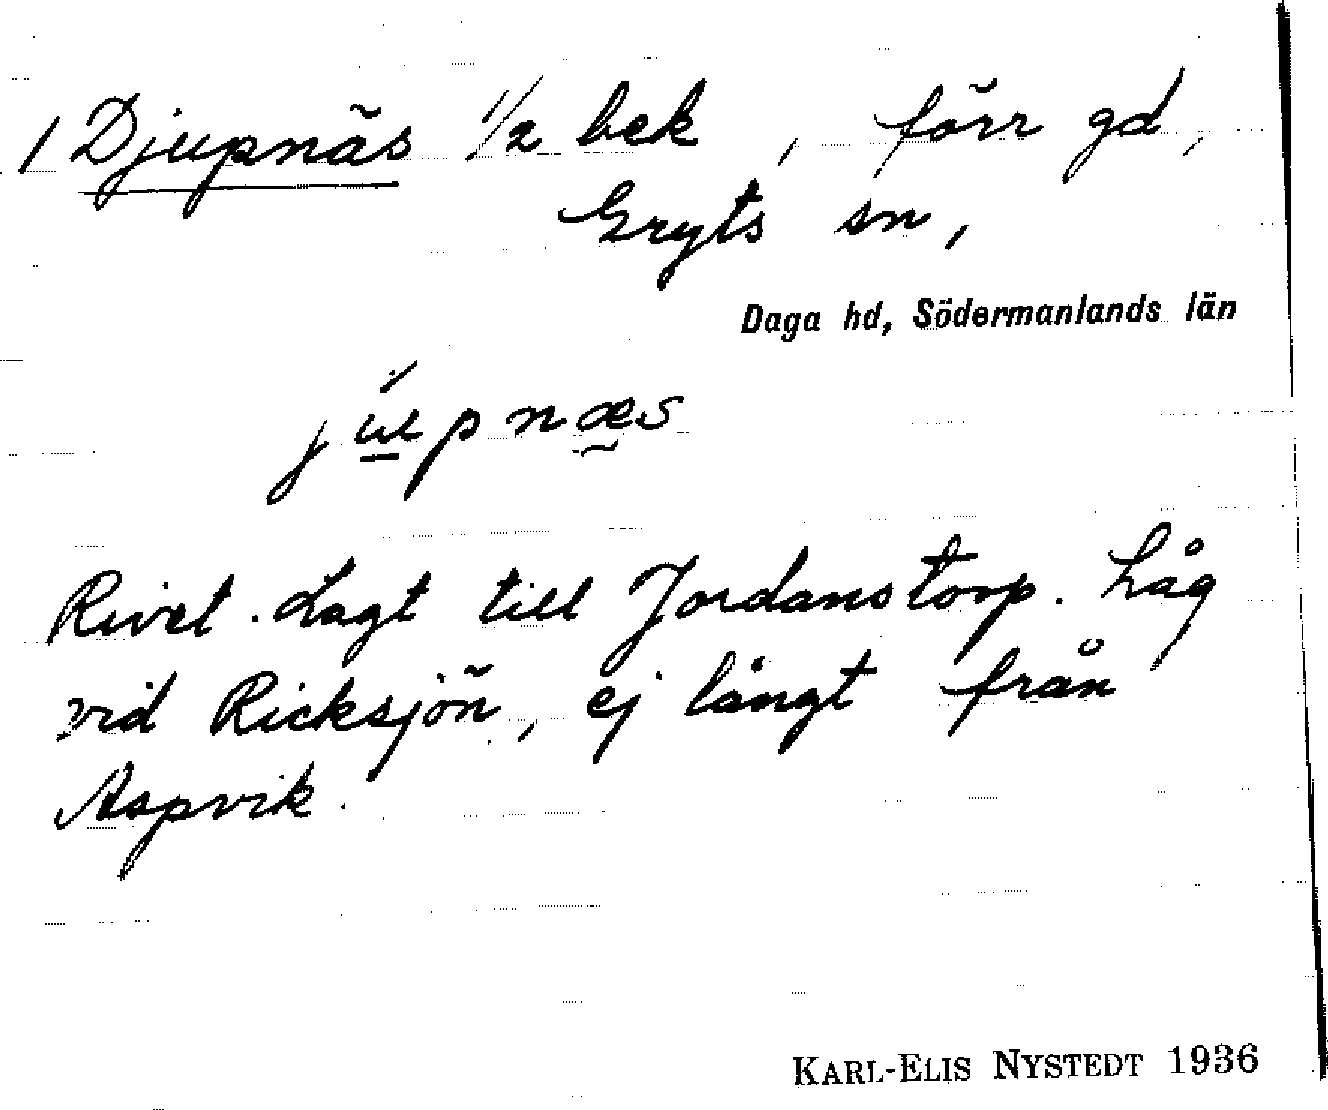 1 Djupnäs 1/2 bek, förr gd,
Gryts sn,
Daga hd, Södermanlands län
júpnæs
Rivet. Lagt till Jordanstorp. Låg
vid Ricksjön, ej långt från
Aspvik.
KARL-ELIS NYSTEDT 1936